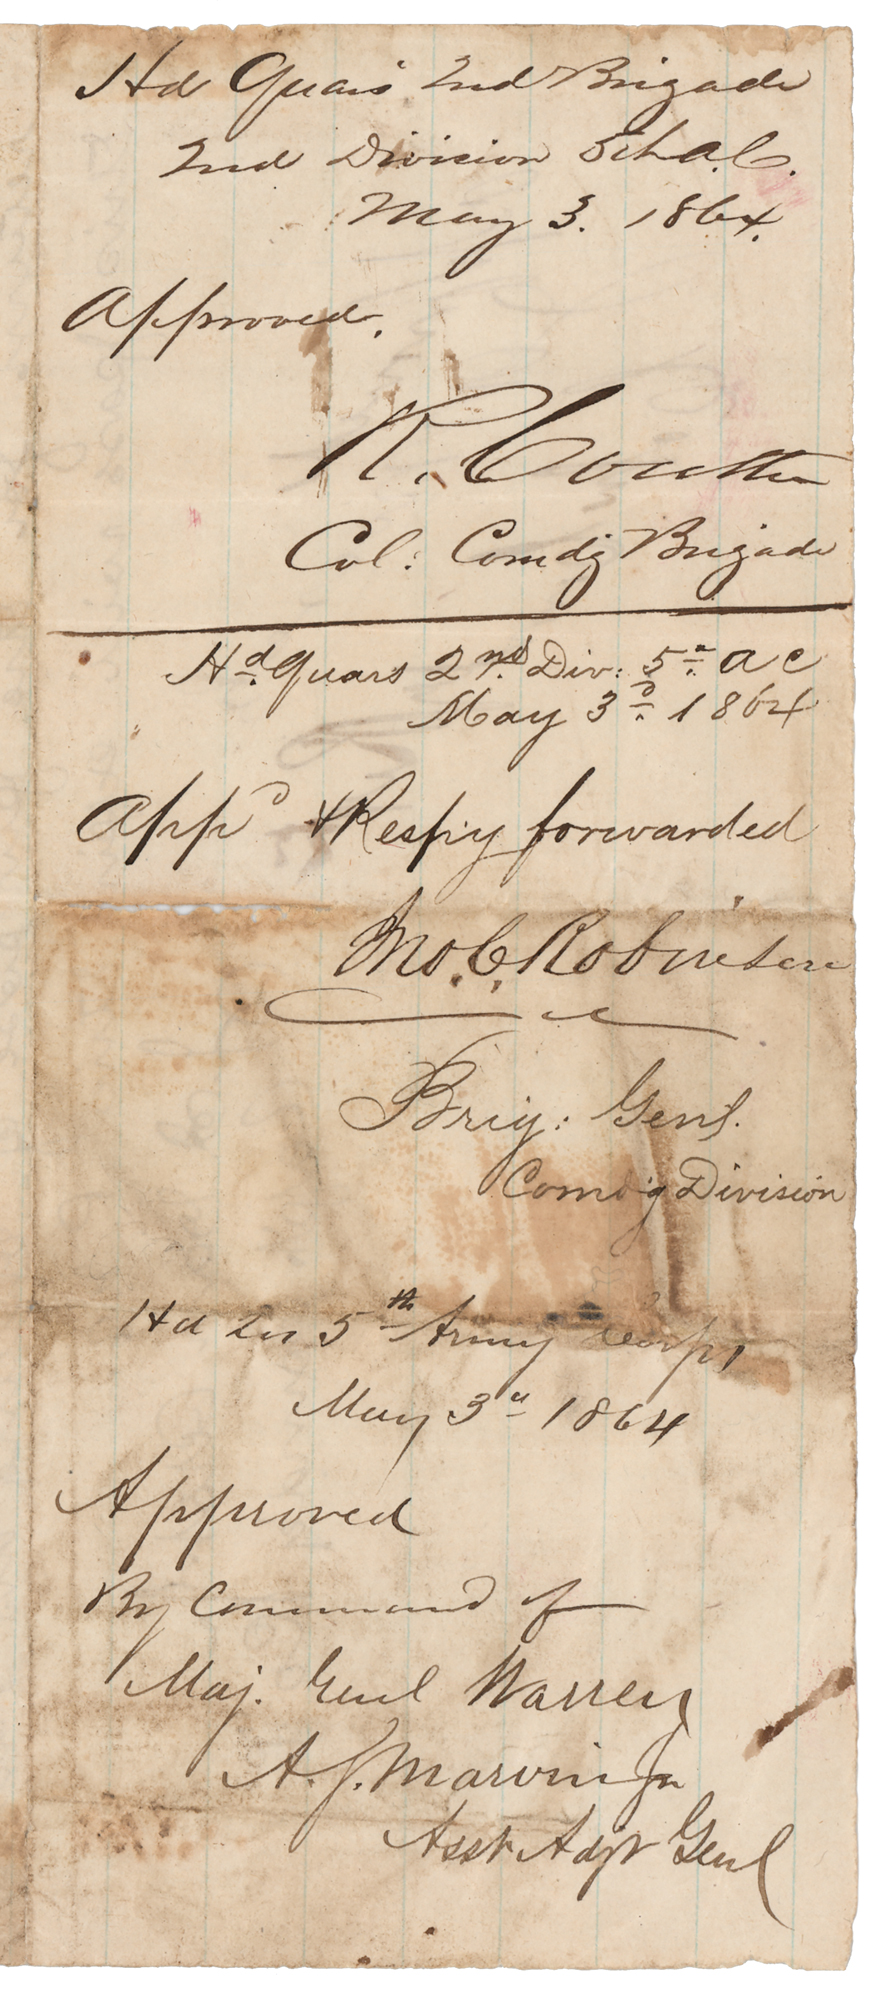 Hd Quars 2nd Brigade
2nd Division 5th A.C.
May 3. 1864.
Approved.
R. Coulter
Col: Comdg Brigade
Hd Quars 2nd Div: 5th A C
May 3d 1864
Appd & Respy forwarded
Jno. C. Robinson
Brig: Genl.
Comdg Division
Hd Qrs 5th Army Corps
May 3d 1864
Approved
By Command of
Maj. Genl Warren
A. S. Marvin Jr
Asst Adjt Genl